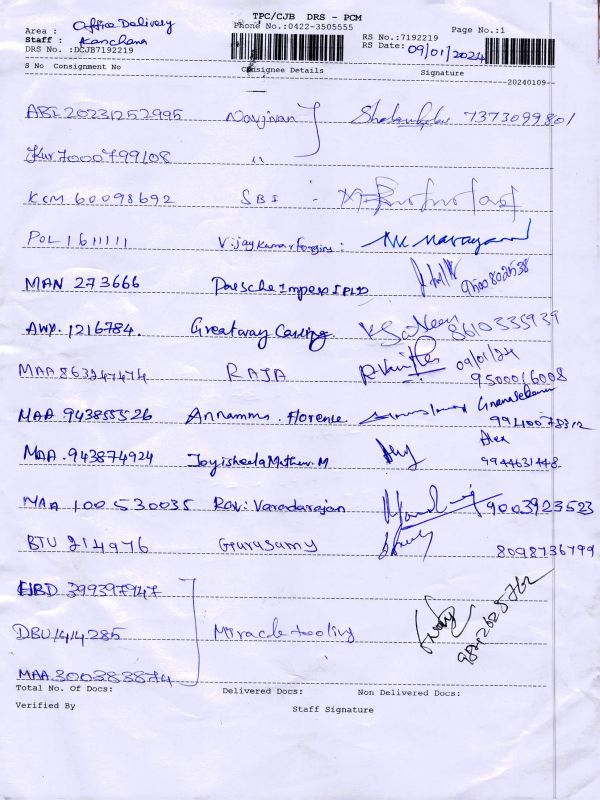 TPC/CJB DRS - PCM
Area : Office Delivery Phone No.:0422-3505555 Page No.:1
Staff : Kanchana RS No.:7192219
DRS No. :DCJB7192219 RS Date: 09/01/2024
S No Consignment No Consignee Details Signature
20240109
ABI 20231252995 Navjivan 7373099801
Kur 7000799108 "
KCM 60098692 SBI -
POL 1611111 Vijay Kumar Forgins :
MAN 273666 Daesche Impex I P Ltd 9500802538
AWP. 1216784. Greatway Casting K. Sateen 8610335939
MAA 863247474 RAJA 09/01/24 9500016008
MAA 943855526 Annamms. Florence Gnanasekaran
MAA. 943874924 Joyisheela Mathew. M Alex 9944631448
MAA 100530035 Ravi Varadarajan 9003923523
BTU 214976 Gurusamy 8098736799
HBD 399397947
DBU 1414285 Miracle tooling
MAA 3003838874
Total No. Of Docs: Delivered Docs: Non Delivered Docs:
Verified By Staff Signature